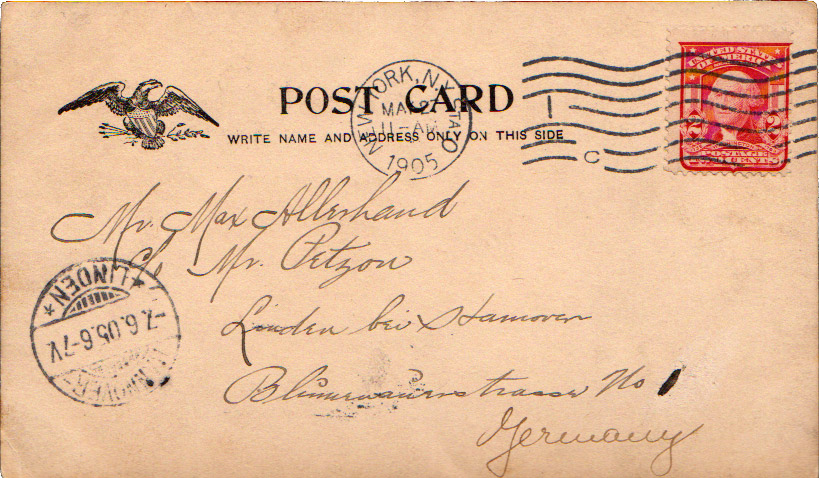 POST CARD
WRITE NAME AND ADDRESS ONLY ON THIS SIDE
NEW YORK, N.Y. STA. O
MAY 2
11-AM
1905
C
UNITED STATES
OF AMERICA
2 2
POSTAGE
TWO CENTS
Mr. Max Allerhand
c/o Mr. Petzon
Linden bei Hannover
Blumenauerstrasse No 1
Germany
LINDEN
7.6.05.6-7V.
HANNOVER